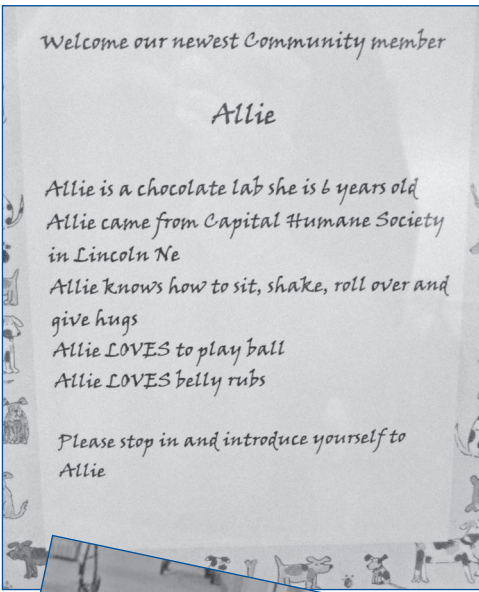 Welcome our newest Community member
Allie
Allie is a chocolate lab she is 6 years old
Allie came from Capital Humane Society
in Lincoln Ne
Allie knows how to sit, shake, roll over and
give hugs
Allie LOVES to play ball
Allie LOVES belly rubs
Please stop in and introduce yourself to
Allie